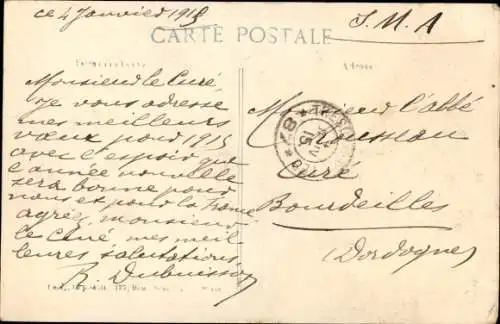 ce 4 Janvier 1915
F. M.
CARTE POSTALE
Correspondance
Adresse
Monsieur le Curé,
je vous adresse
mes meilleurs
vœux pour 1915
avec l'espoir que
l'année nouvelle
sera bonne pour
nous et pour la France
agréez, monsieur
le Curé mes meil
leures salutations
R. Dubuisson
Monsieur l'abbé
Curé
Bourdeilles
Dordogne
15